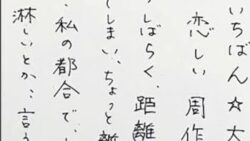 いちばん☆大
恋しい周作
しばらく、距離
てしまい、ちょっと離
私の都合で、
淋しいとか…言う